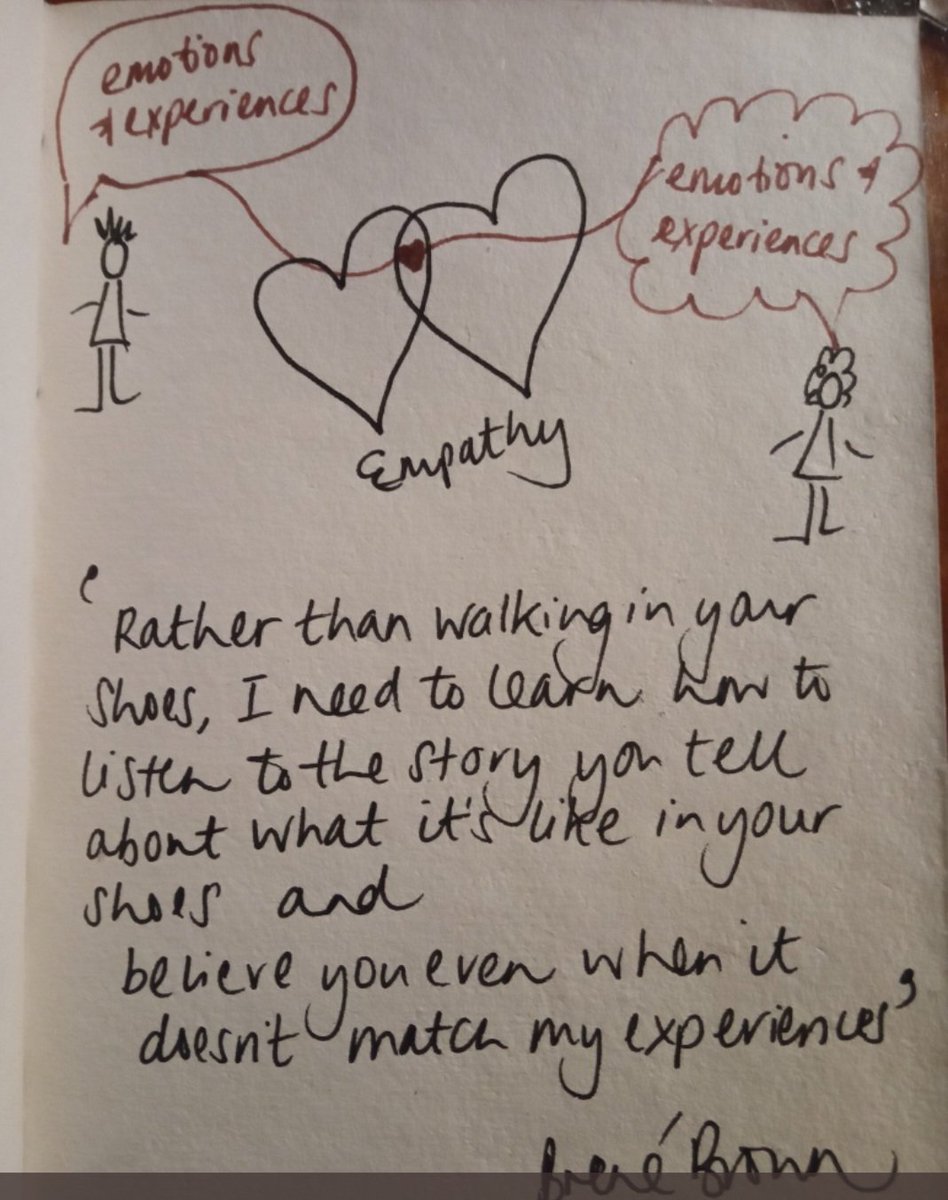 emotions
& experiences
emotions &
experiences
Empathy
'Rather than walking in your
shoes, I need to learn how to
listen to the story you tell
about what it's like in your
shoes and
believe you even when it
doesn't match my experiences'
Brené Brown